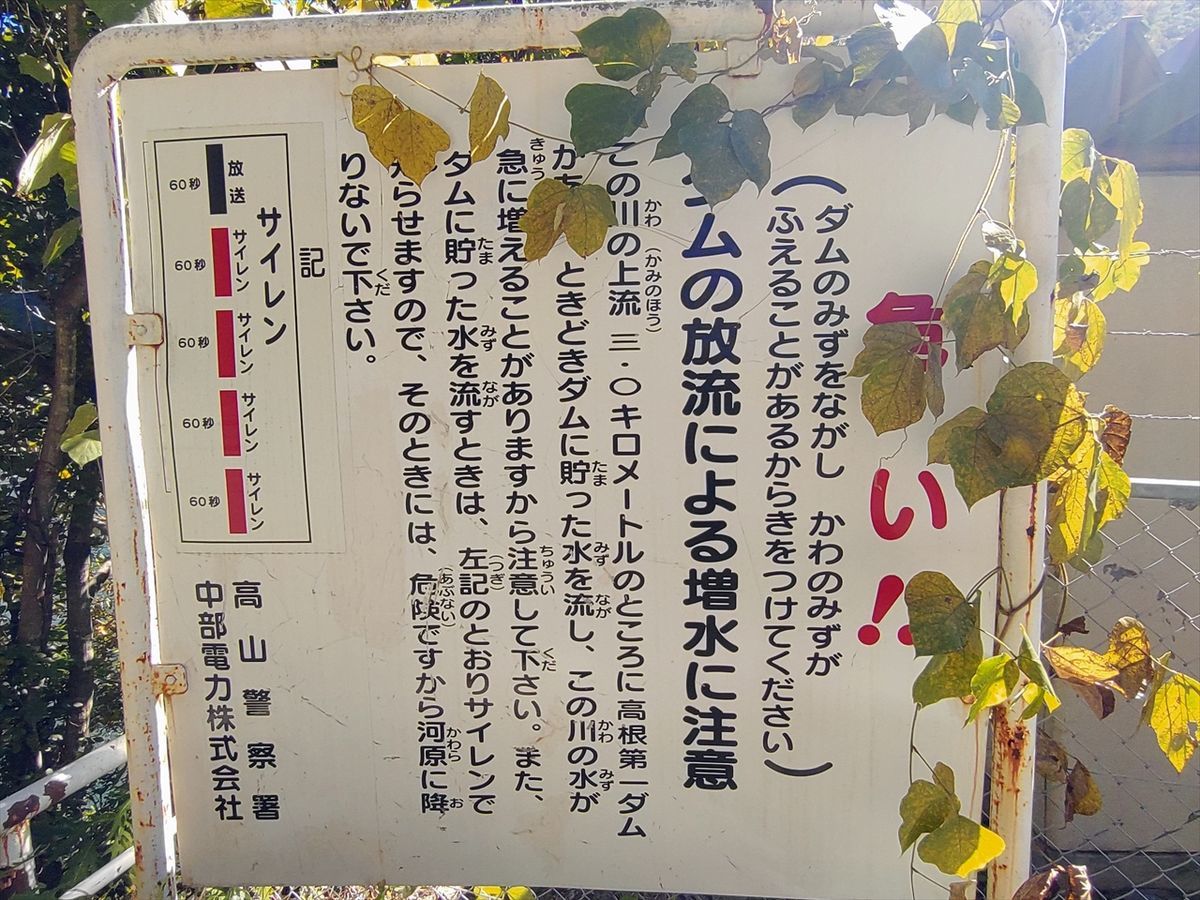 危い!!
(ダムのみずをながし かわのみずが
ふえることがあるからきをつけてください)
ダムの放流による増水に注意
かわ (かみのほう)
この川の上流 三・〇キロメートルのところに高根第一ダム
たま みず なが かわ みず
があ ときどきダムに貯った水を流し、この川の水が
きゅう ちゅうい くだ
急に増えることがありますから注意して下さい。また、
たま みず なが (つぎ)
ダムに貯った水を流すときは、左記のとおりサイレンで
(あぶない) かわら お
らせますので、そのときには、危険ですから河原に降
くだ
りないで下さい。
記
サイレン
放送 サイレン サイレン サイレン サイレン
60秒 60秒 60秒 60秒 60秒
高山警察署
中部電力株式会社